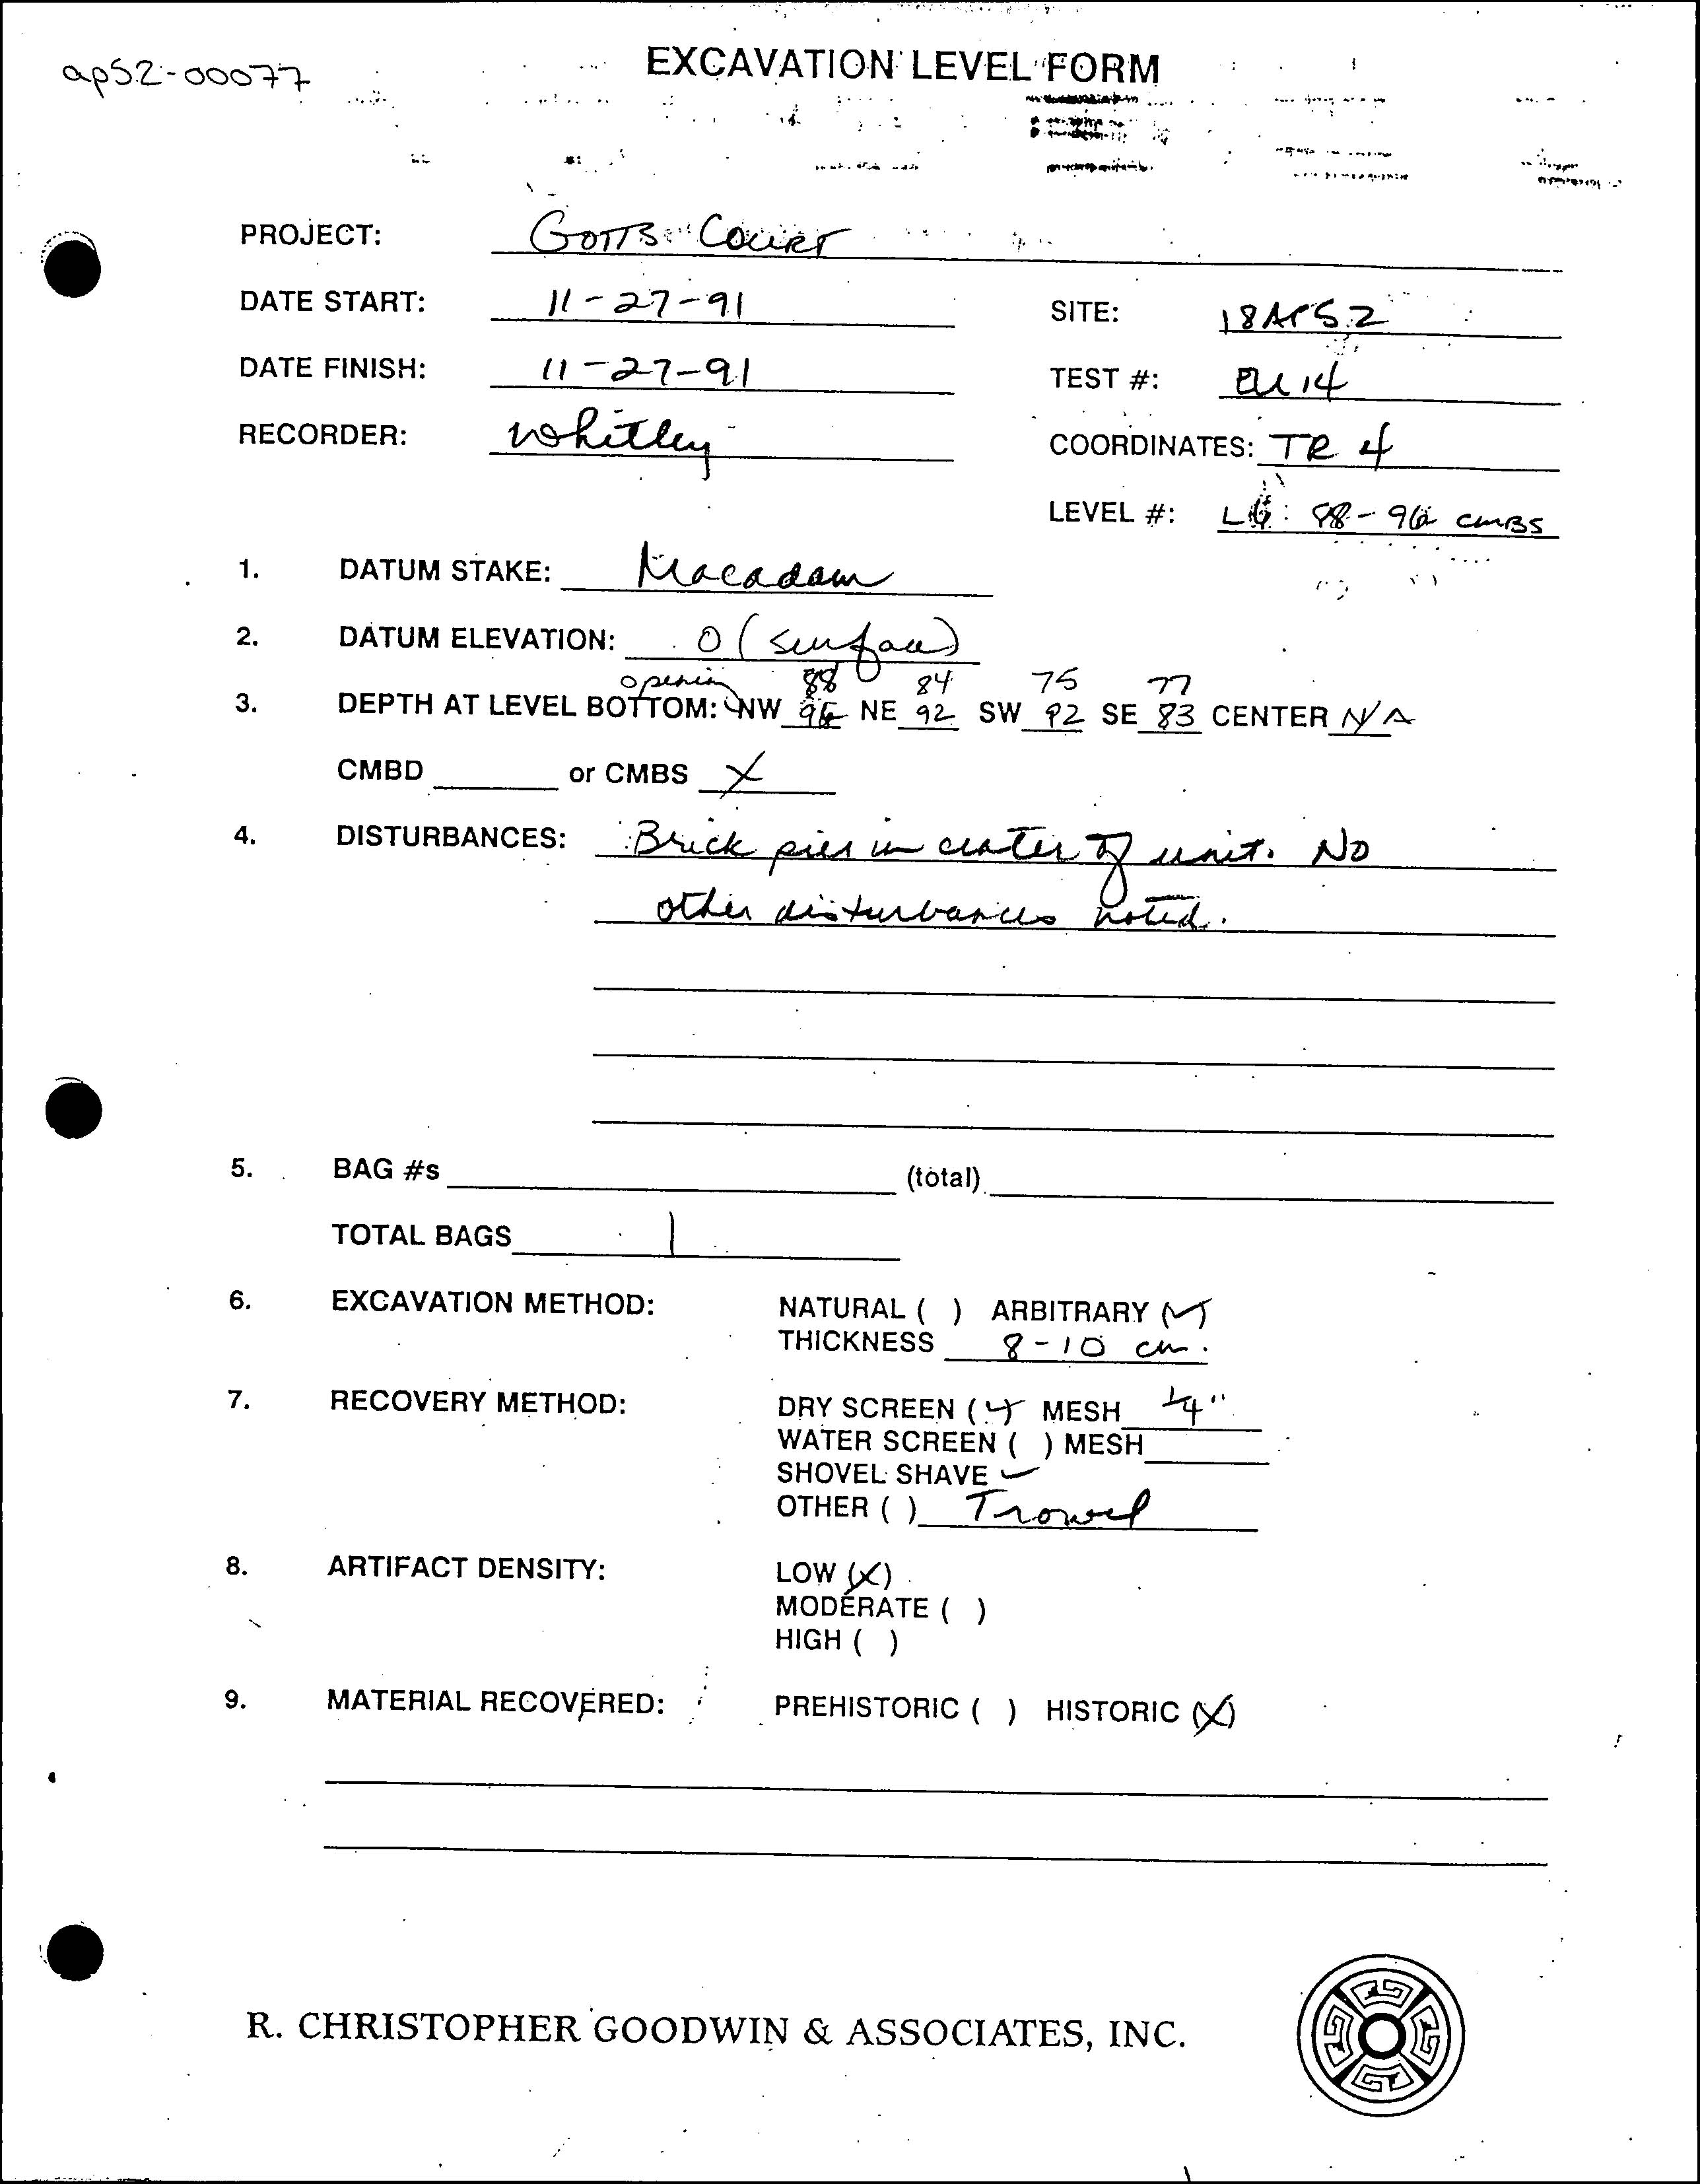 ap52-00077
EXCAVATION LEVEL FORM
PROJECT: GOTTS COURT
DATE START: 11-27-91
SITE: 18AP52
DATE FINISH: 11-27-91
TEST #: EU 14
RECORDER: Whitley
COORDINATES: TR 4
LEVEL #: 88-96 CMBS
1. DATUM STAKE: Macadam
2. DATUM ELEVATION: 0 (surface)
opening 88 84 75 77
3. DEPTH AT LEVEL BOTTOM: NW 96 NE 92 SW 82 SE 83 CENTER N/A
CMBD or CMBS X
4. DISTURBANCES: Brick pier in center of unit. No
other disturbances noted.
5. BAG #s (total)
TOTAL BAGS 1
6. EXCAVATION METHOD: NATURAL ( ) ARBITRARY (✓)
THICKNESS 8-10 cm.
7. RECOVERY METHOD: DRY SCREEN (✓) MESH 1/4"
WATER SCREEN ( ) MESH
SHOVEL SHAVE ✓
OTHER ( ) Trowel
8. ARTIFACT DENSITY: LOW (X)
MODERATE ( )
HIGH ( )
9. MATERIAL RECOVERED: PREHISTORIC ( ) HISTORIC (X)
R. CHRISTOPHER GOODWIN & ASSOCIATES, INC.